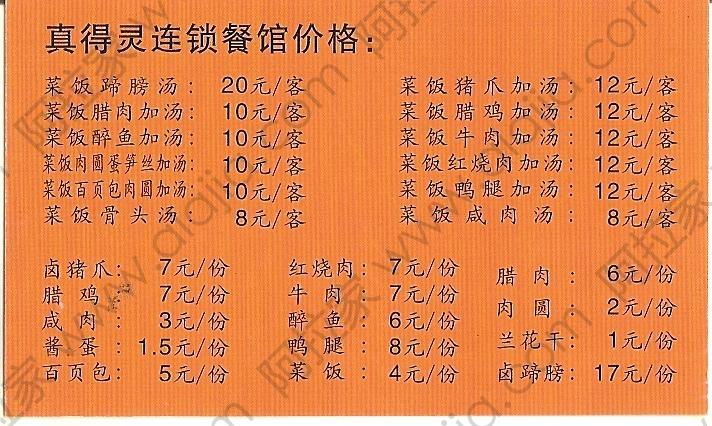 真得灵连锁餐馆价格：
菜饭蹄膀汤： 20元/客
菜饭腊肉加汤： 10元/客
菜饭醉鱼加汤： 10元/客
菜饭肉圆蛋笋丝加汤： 10元/客
菜饭百页包肉圆加汤： 10元/客
菜饭骨头汤： 8元/客
菜饭猪爪加汤： 12元/客
菜饭腊鸡加汤： 12元/客
菜饭牛肉加汤： 12元/客
菜饭红烧肉加汤： 12元/客
菜饭鸭腿加汤： 12元/客
菜饭咸肉汤： 8元/客
卤猪爪： 7元/份
腊鸡： 7元/份
咸肉： 3元/份
酱蛋： 1.5元/份
百页包： 5元/份
红烧肉： 7元/份
牛肉： 7元/份
醉鱼： 6元/份
鸭腿： 8元/份
菜饭： 4元/份
腊肉： 6元/份
肉圆： 2元/份
兰花干： 1元/份
卤蹄膀： 17元/份
阿拉家 www.alajia.com